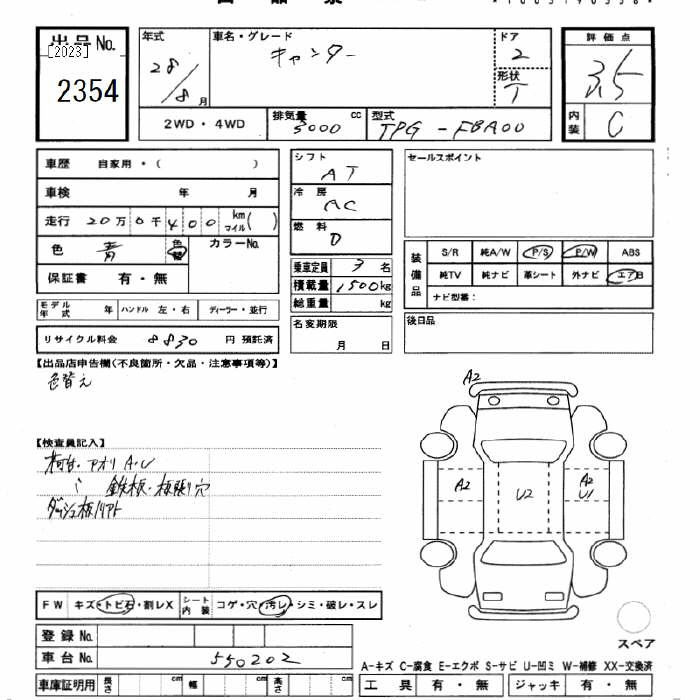 出品票
出品No.
[2023]
2354
年式
28/8月
車名・グレード
キャンター
ドア
2
形状
T
評価点
3.5
内装
C
2WD・4WD
排気量 cc
5000
型式
TPG-FBA00
車歴 自家用・( )
車検 年 月
走行 20万0千400 km マイル( )
色 青 色替 カラーNo.
保証書 有・無
モデル年式 年 ハンドル 左・右 ディーラー・並行
リサイクル料金 8830 円 預託済
シフト
AT
冷房
AC
燃料
D
乗車定員 3名
積載量 1500kg
総重量 kg
名変期限
月 日
セールスポイント
装備品
S/R 純A/W P/S P/W ABS
純TV 純ナビ 革シート 外ナビ エアB
ナビ型番:
後日品
【出品店申告欄(不良箇所・欠品・注意事項等)】
色替え
【検査員記入】
荷台・アオリ A・U
〃 鉄板・板張り穴
ダッシュ板リアト
A2
A2
U2
A2
U1
FW キズ・トビ石・割レX シート内装 コゲ・穴・汚レ・シミ・破レ・スレ
スペア
登録No.
車台No. 550202
A-キズ C-腐食 E-エクボ S-サビ U-凹ミ W-補修 XX-交換済
車庫証明用 長さ cm 幅 cm 高さ cm
工具 有・無 ジャッキ 有・無